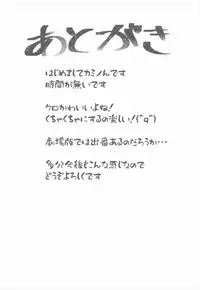 あとがき
はじめましてカミノんです
時間が無いです
クロかわいいよね!
くちゃくちゃにするの楽しい!(^q^)
劇場版では出番あるのだろうか…
多分今後もこんな感じなので
どうぞよろしくです